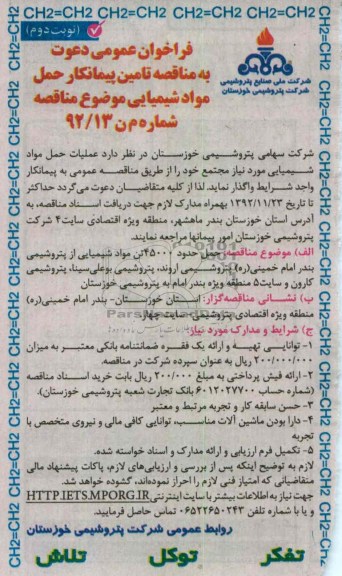 (نوبت دوم)
شرکت ملی صنایع پتروشیمی
شرکت پتروشیمی خوزستان
فراخوان عمومی دعوت
به مناقصه تامین پیمانکار حمل
مواد شیمیایی موضوع مناقصه
شماره م ن ۹۲/۱۳
شرکت سهامی پتروشیمی خوزستان در نظر دارد عملیات حمل مواد
شیمیایی مورد نیاز مجتمع خود را از طریق مناقصه عمومی به پیمانکار
واجد شرایط واگذار نماید. لذا از کلیه متقاضیان دعوت می‌گردد حداکثر
تا تاریخ ۱۳۹۲/۱۱/۲۳ بهمراه مدارک لازم جهت دریافت اسناد مناقصه، به
آدرس استان خوزستان بندر ماهشهر، منطقه ویژه اقتصادی سایت۴ شرکت
پتروشیمی خوزستان امور پیمانها مراجعه نمایند.
الف) موضوع مناقصه: حمل حدود ۴۵۰۰۰تن مواد شیمیایی از پتروشیمی
بندر امام خمینی(ره)، پتروشیمی اروند، پتروشیمی بوعلی‌سینا، پتروشیمی
کارون و سایت۵ منطقه ویژه بندر امام به پتروشیمی خوزستان
ب) نشانی مناقصه‌گزار: استان خوزستان- بندر امام خمینی(ره)
منطقه ویژه اقتصادی پتروشیمی- سایت چهار
ج) شرایط و مدارک مورد نیاز:
۱- توانایی تهیه و ارائه یک فقره ضمانتنامه بانکی معتبر به میزان
۲۰۰/۰۰۰/۰۰۰ ریال به عنوان سپرده شرکت در مناقصه.
۲- ارائه فیش پرداختی به مبلغ ۲۰۰/۰۰۰ ریال بابت خرید اسناد مناقصه
(شماره حساب ۶۰۱۲۰۲۷۷۰۰ بانک تجارت شعبه پتروشیمی خوزستان).
۳- حسن سابقه کار و تجربه مرتبط و معتبر
۴- دارا بودن ماشین آلات مناسب، توانایی کافی مالی و نیروی متخصص با
تجربه
۵- تکمیل فرم ارزیابی و ارائه مدارک و اسناد خواسته شده.
لازم به توضیح اینکه پس از بررسی و ارزیابی‌های لازم، پاکات پیشنهاد مالی
متقاضیانی که امتیاز فنی لازم را احراز نموده‌اند، گشوده خواهد شد.
جهت نیاز به اطلاعات بیشتر با سایت اینترنتی HTTP.IETS.MPORG.IR
و یا با شماره تلفن ۰۶۵۲۲۶۵۰۲۴۳ تماس حاصل فرمایید.
روابط عمومی شرکت پتروشیمی خوزستان
تفکر توکل تلاش